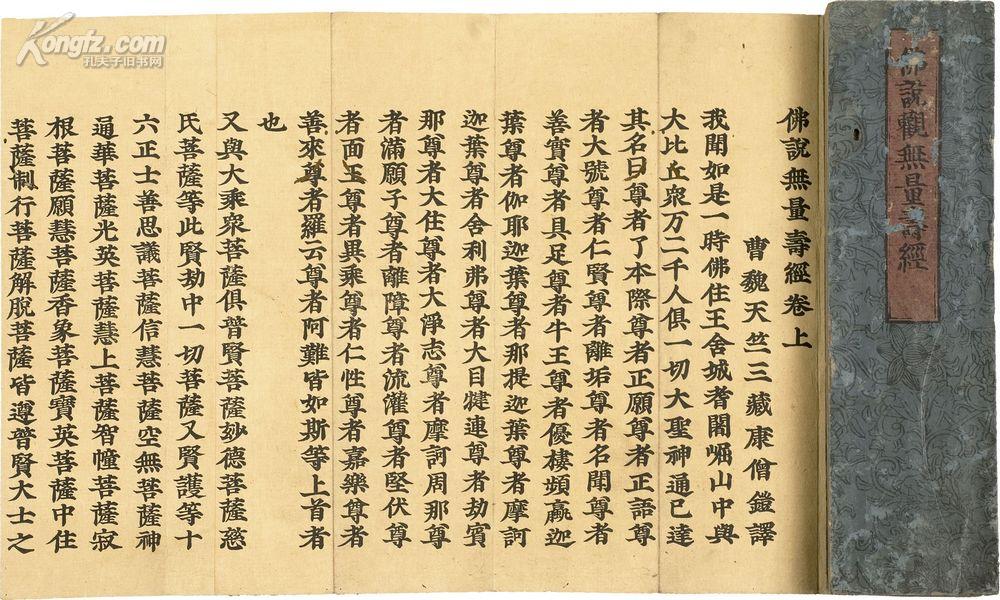 佛說觀無量壽經
佛說無量壽經卷上
曹魏天竺三藏康僧鎧譯
我聞如是一時佛住王舍城耆闍崛山中與
大比丘衆万二千人俱一切大聖神通已達
其名曰尊者了本際尊者正願尊者正語尊
者大號尊者仁賢尊者離垢尊者名聞尊者
善實尊者具足尊者牛王尊者優樓頻蠃迦
葉尊者伽耶迦葉尊者那提迦葉尊者摩訶
迦葉尊者舍利弗尊者大目揵連尊者劫賓
那尊者大住尊者大淨志尊者摩訶周那尊
者滿願子尊者離障尊者流灌尊者堅伏尊
者面王尊者異乘尊者仁性尊者嘉樂尊者
善來尊者羅云尊者阿難皆如斯等上首者
也
又與大乘衆菩薩俱普賢菩薩妙德菩薩慈
氏菩薩等此賢劫中一切菩薩又賢護等十
六正士善思議菩薩信慧菩薩空無菩薩神
通華菩薩光英菩薩慧上菩薩智幢菩薩寂
根菩薩願慧菩薩香象菩薩寶英菩薩中住
菩薩制行菩薩解脫菩薩皆遵普賢大士之
Kongfz.com
孔夫子旧书网